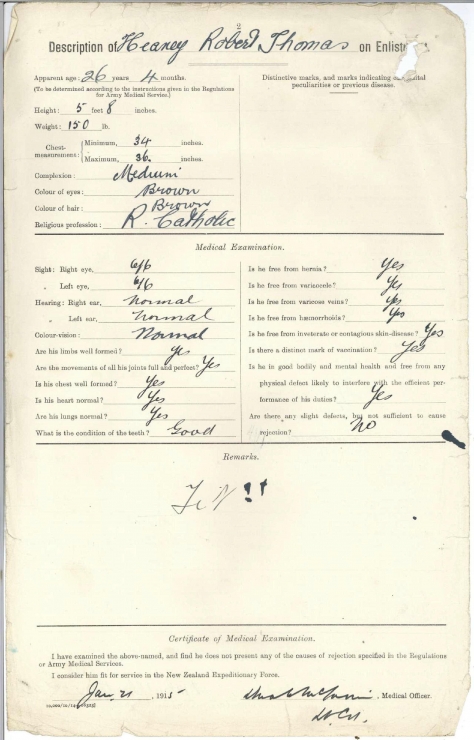 2
Description of Heaney Robert Thomas on Enlist
Apparent age: 26 years 4 months.
(To be determined according to the instructions given in the Regulations
for Army Medical Service.)
Height: 5 feet 8 inches.
Weight: 150 lb.
Chest-measurement: Minimum, 34 inches.
Maximum, 36. inches.
Complexion: Medium
Colour of eyes: Brown
Colour of hair: Brown
Religious profession: R. Catholic
Distinctive marks, and marks indicating
peculiarities or previous disease.
Medical Examination.
Sight: Right eye, 6/6
Left eye, 6/6
Hearing: Right ear, Normal
Left ear, Normal
Colour-vision: Normal
Are his limbs well formed? Yes
Are the movements of all his joints full and perfect? Yes
Is his chest well formed? Yes
Is his heart normal? Yes
Are his lungs normal? Yes
What is the condition of the teeth? Good
Is he free from hernia? Yes
Is he free from varicocele? Yes
Is he free from varicose veins? Yes
Is he free from hæmorrhoids? Yes
Is he free from inveterate or contagious skin-disease? Yes
Is there a distinct mark of vaccination? Yes
Is he in good bodily and mental health and free from any
physical defect likely to interfere with the efficient per-
formance of his duties? Yes
Are there any slight defects, but not sufficient to cause
rejection? No
Remarks.
Fit !!
Certificate of Medical Examination.
I have examined the above-named, and find he does not present any of the causes of rejection specified in the Regulations
or Army Medical Services.
I consider him fit for service in the New Zealand Expeditionary Force.
Jan. 21, 1915
, Medical Officer.